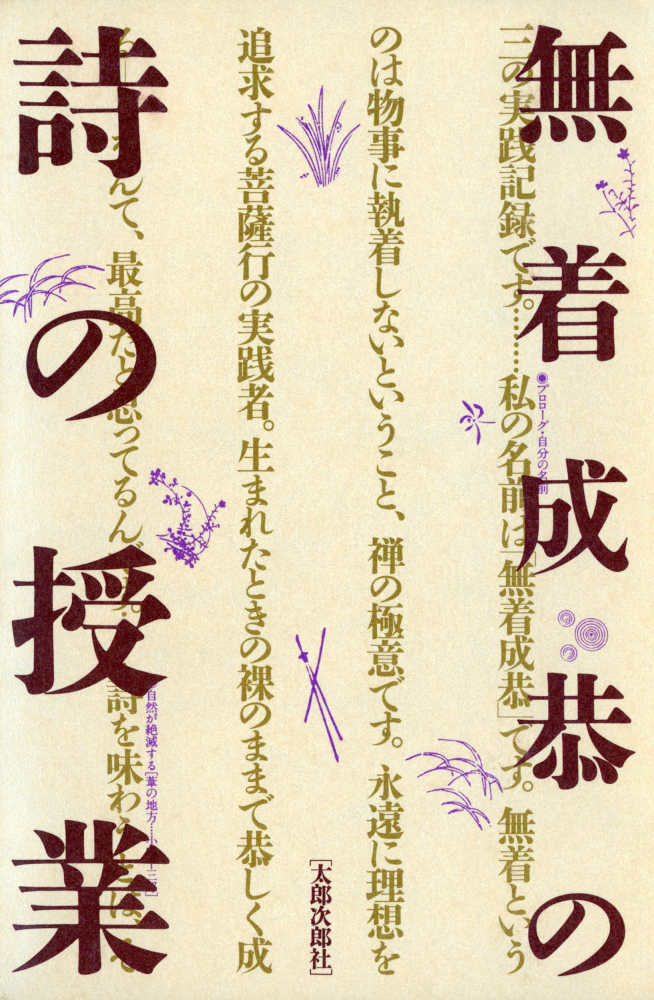 無着成恭の
三の実践記録です。……私の名前は「無着成恭」です。無着という
◉プロローグ・自分の名前
のは物事に執着しないということ、禅の極意です。永遠に理想を
[太郎次郎社]
追求する菩薩行の実践者。生まれたときの裸のままで恭しく成
んて、最高だと思ってるんです。詩を味わうとは、そ
自然が絶滅する[葦の地方……小十三
詩の授業